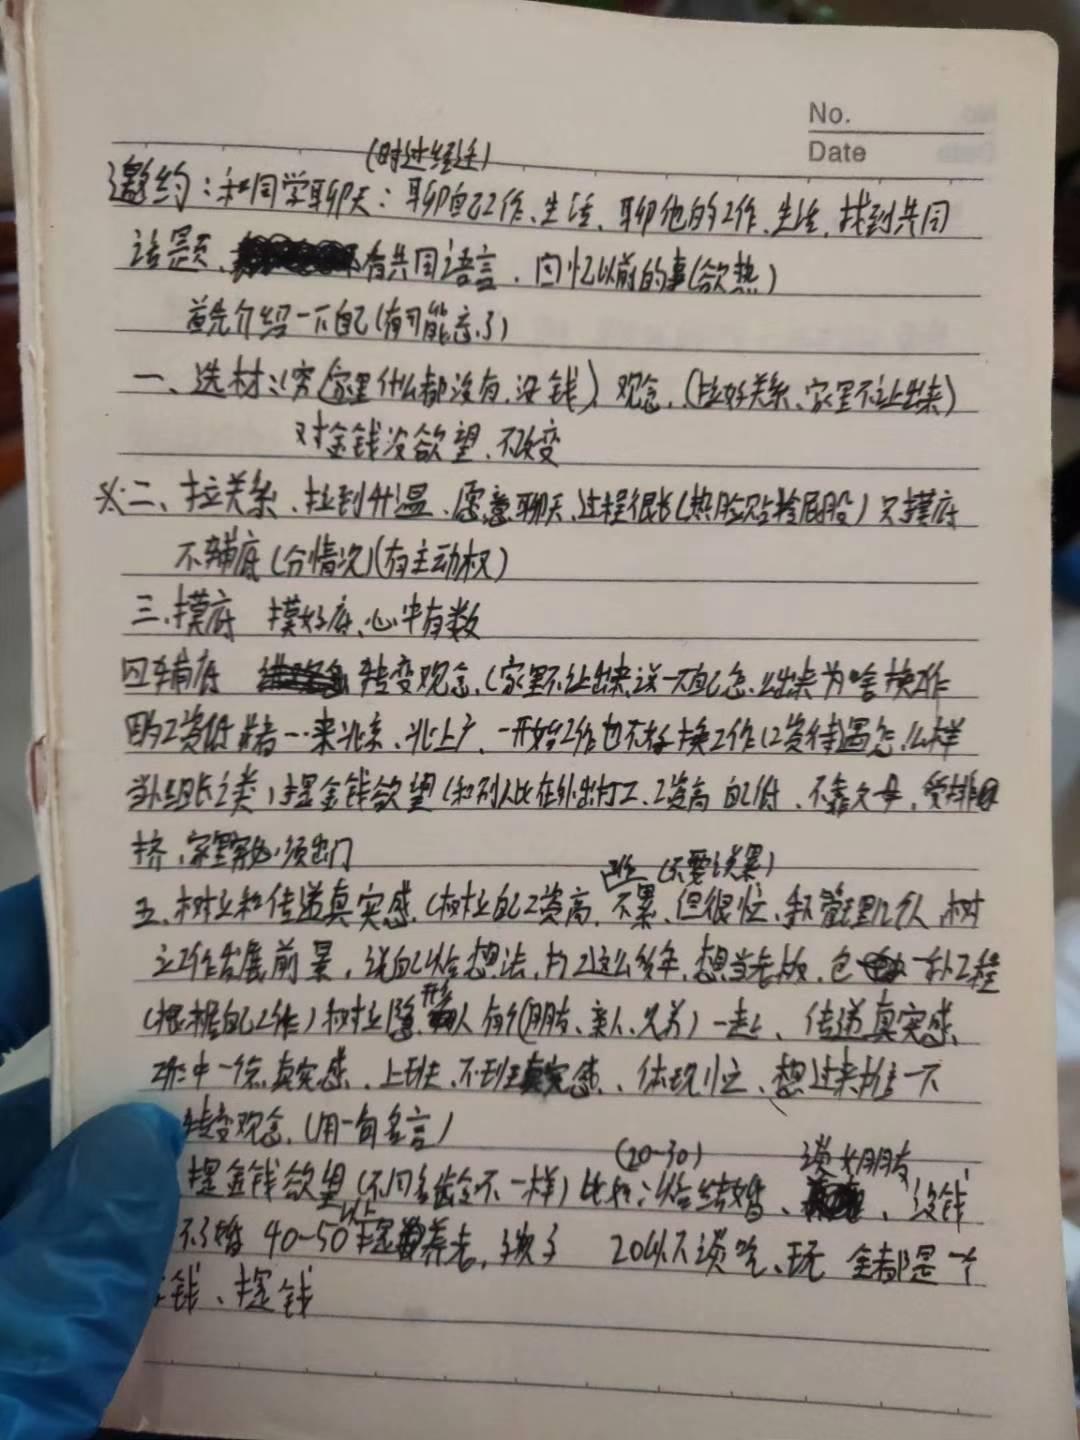 No.
Date
邀约：和同学聊天：聊自己工作、生活、聊他的工作、生活，找到共同
话题、有共同语言，回忆以前的事(欲热)
首先介绍一下自己(有可能忘了)
一、选材：(穷(家里什么都没有，没钱)观念，(拉好关系、家里不让出来)
对金钱没欲望、不改变
二、拉关系、拉到升温、愿意聊天、过程很长(热脸贴冷屁股)只摸底
不铺底(分情况)(有主动权)
三、摸底 摸好底、心中有数
四铺底 转变观念，(家里不让出来，说一下自己怎么出来为啥换工作
因为工资低 一开始工作也不好换工作(工资待遇怎么样
当组长之类)提金钱欲望(和别人比在外出打工、工资高自己低、不靠父母，受排
挤、家里穷必须出门
(不要谈累)
五、树立和传递真实感，(树立自己工资高，不累，但很忙，我管理几个人，树
立工作发展前景，说自己给想法，打工这么多年，想当老板，包一补工程
(根据自己工作)树立隐形人有个(朋友、亲人、兄弟)一起、传递真实感
工作中一你真实感、上班、不到班真实感、体现忙、想过来推一下
转变观念，(用一句名言)
(20-30) 谈女朋友
提金钱欲望(不同年龄不一样)比如：给结婚、没钱
不了婚 40-50以上提养老，孩子 20以下谈吃、玩 全都是一个
钱、提钱